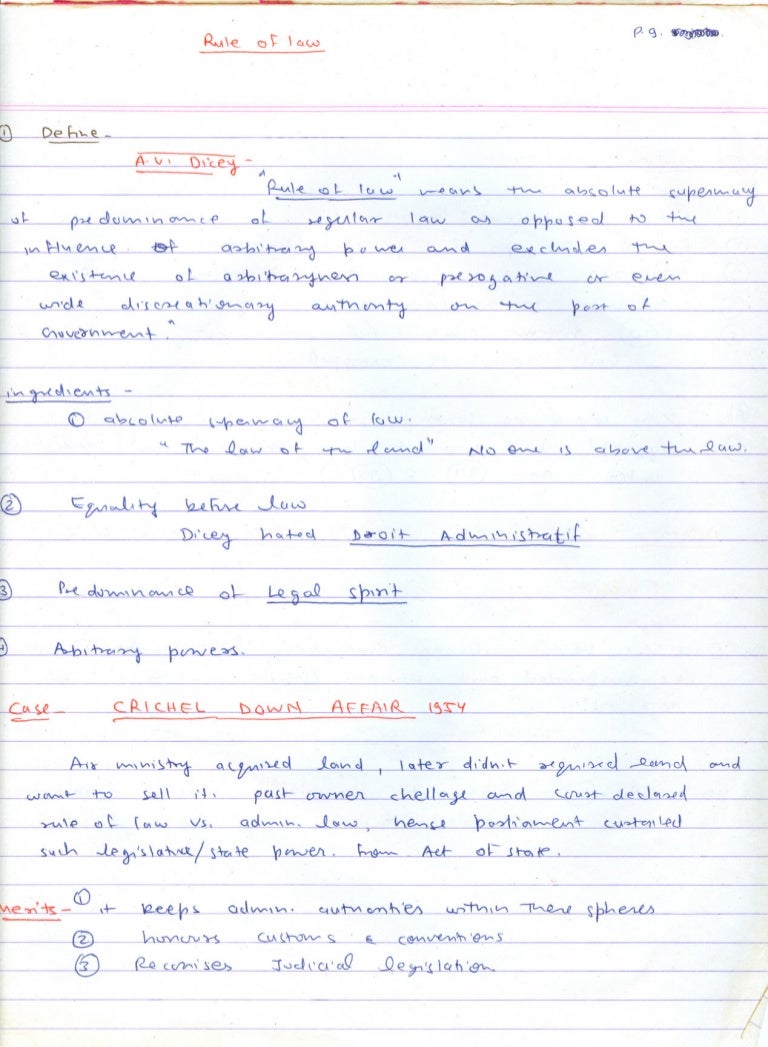 Rule of law
P.g.
① Define -
A.V. Dicey -
"Rule of law" means the absolute supermacy
of predominance of regular law as opposed to the
influence of arbitrary power and excludes the
existence of arbitraryness or prerogative or even
wide discreationary authority on the part of
Government."
ingredients -
① absolute supermacy of law.
"The law of the land" No one is above the law.
② Equality before law
Dicey hated Droit Administratif
③ Predominance of Legal spirit
Arbitrary powers.
Case - CRICHEL DOWN AFFAIR 1954
Air ministry acquired land, later didn't required land and
want to sell it. past owner chellage and court declared
rule of law vs. admin. law, hence parliament curtailed
such legislative/state power. from Act of state.
merits - ① it keeps admin. authorities within there spheres
② honours customs & conventions
③ Reconises Judicial legislation.